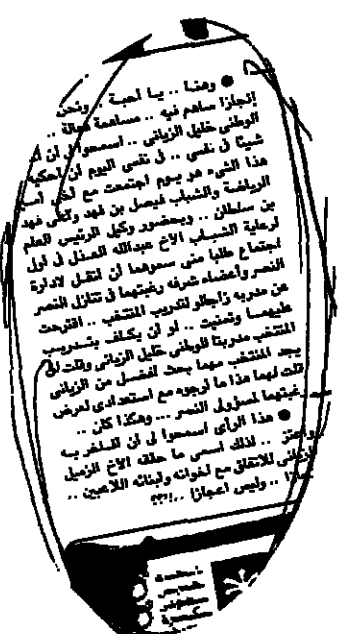 ● وهنا .. يا أحبة .. ونحن
إنجازا ساهم فيه .. مساهمة فعالة ..
الوطني خليل الزياني .. اسمحوا لى أن
شيئا فى نفسى .. فى نفسى اليوم أن أحكيه
هذا الشىء هو يوم اجتمعت مع أخى
الرياضة والشباب فيصل بن فهد وأخى فهد
بن سلطان .. وبحضور وكيل الرئيس العام
لرعاية الشباب الأخ عبدالله العبدل فى أول
اجتماع طلبا منى سموهما أن أنقل لادارة
النصر وأعضاء شرفه رغبتهما فى تنازل النصر
عن مدربه زاجالو لتدريب المنتخب .. اقترحت
عليهما وتمنيت .. لو أن يكلف بتدريب
المنتخب مدربنا الوطنى خليل الزيانى وقلت لن
يجد المنتخب مهما بحث أفضل من الزيانى
قلت لهما هذا ما أرجوه مع استعدادى لعرض
رغبتهما لمسؤولى النصر ... وهكذا كان ..
● هذا الرأى اسمحوا لى أن أفاخر به
وأعتز .. لذلك اسمى ما حققه الأخ الزميل
الزيانى للاتفاق مع اخوانه وأبنائه اللاعبين ..
.. وليس اعجازا ..